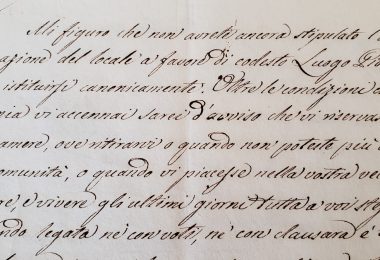 Mi figuro che non avrete ancora stipulato l'
azione del locale a favore di codesto Luogo Pi
istituirsi canonicamente. Oltre le condizioni
vi accennai sarei d'avviso che vi riservas
camere, ove ritirarvi o quando non poteste più
comunità, o quando vi piacesse nella vostra vec
re, e vivere gli ultimi giorni tutta a voi ste
ndo legata nè con voti, nè con clausura è